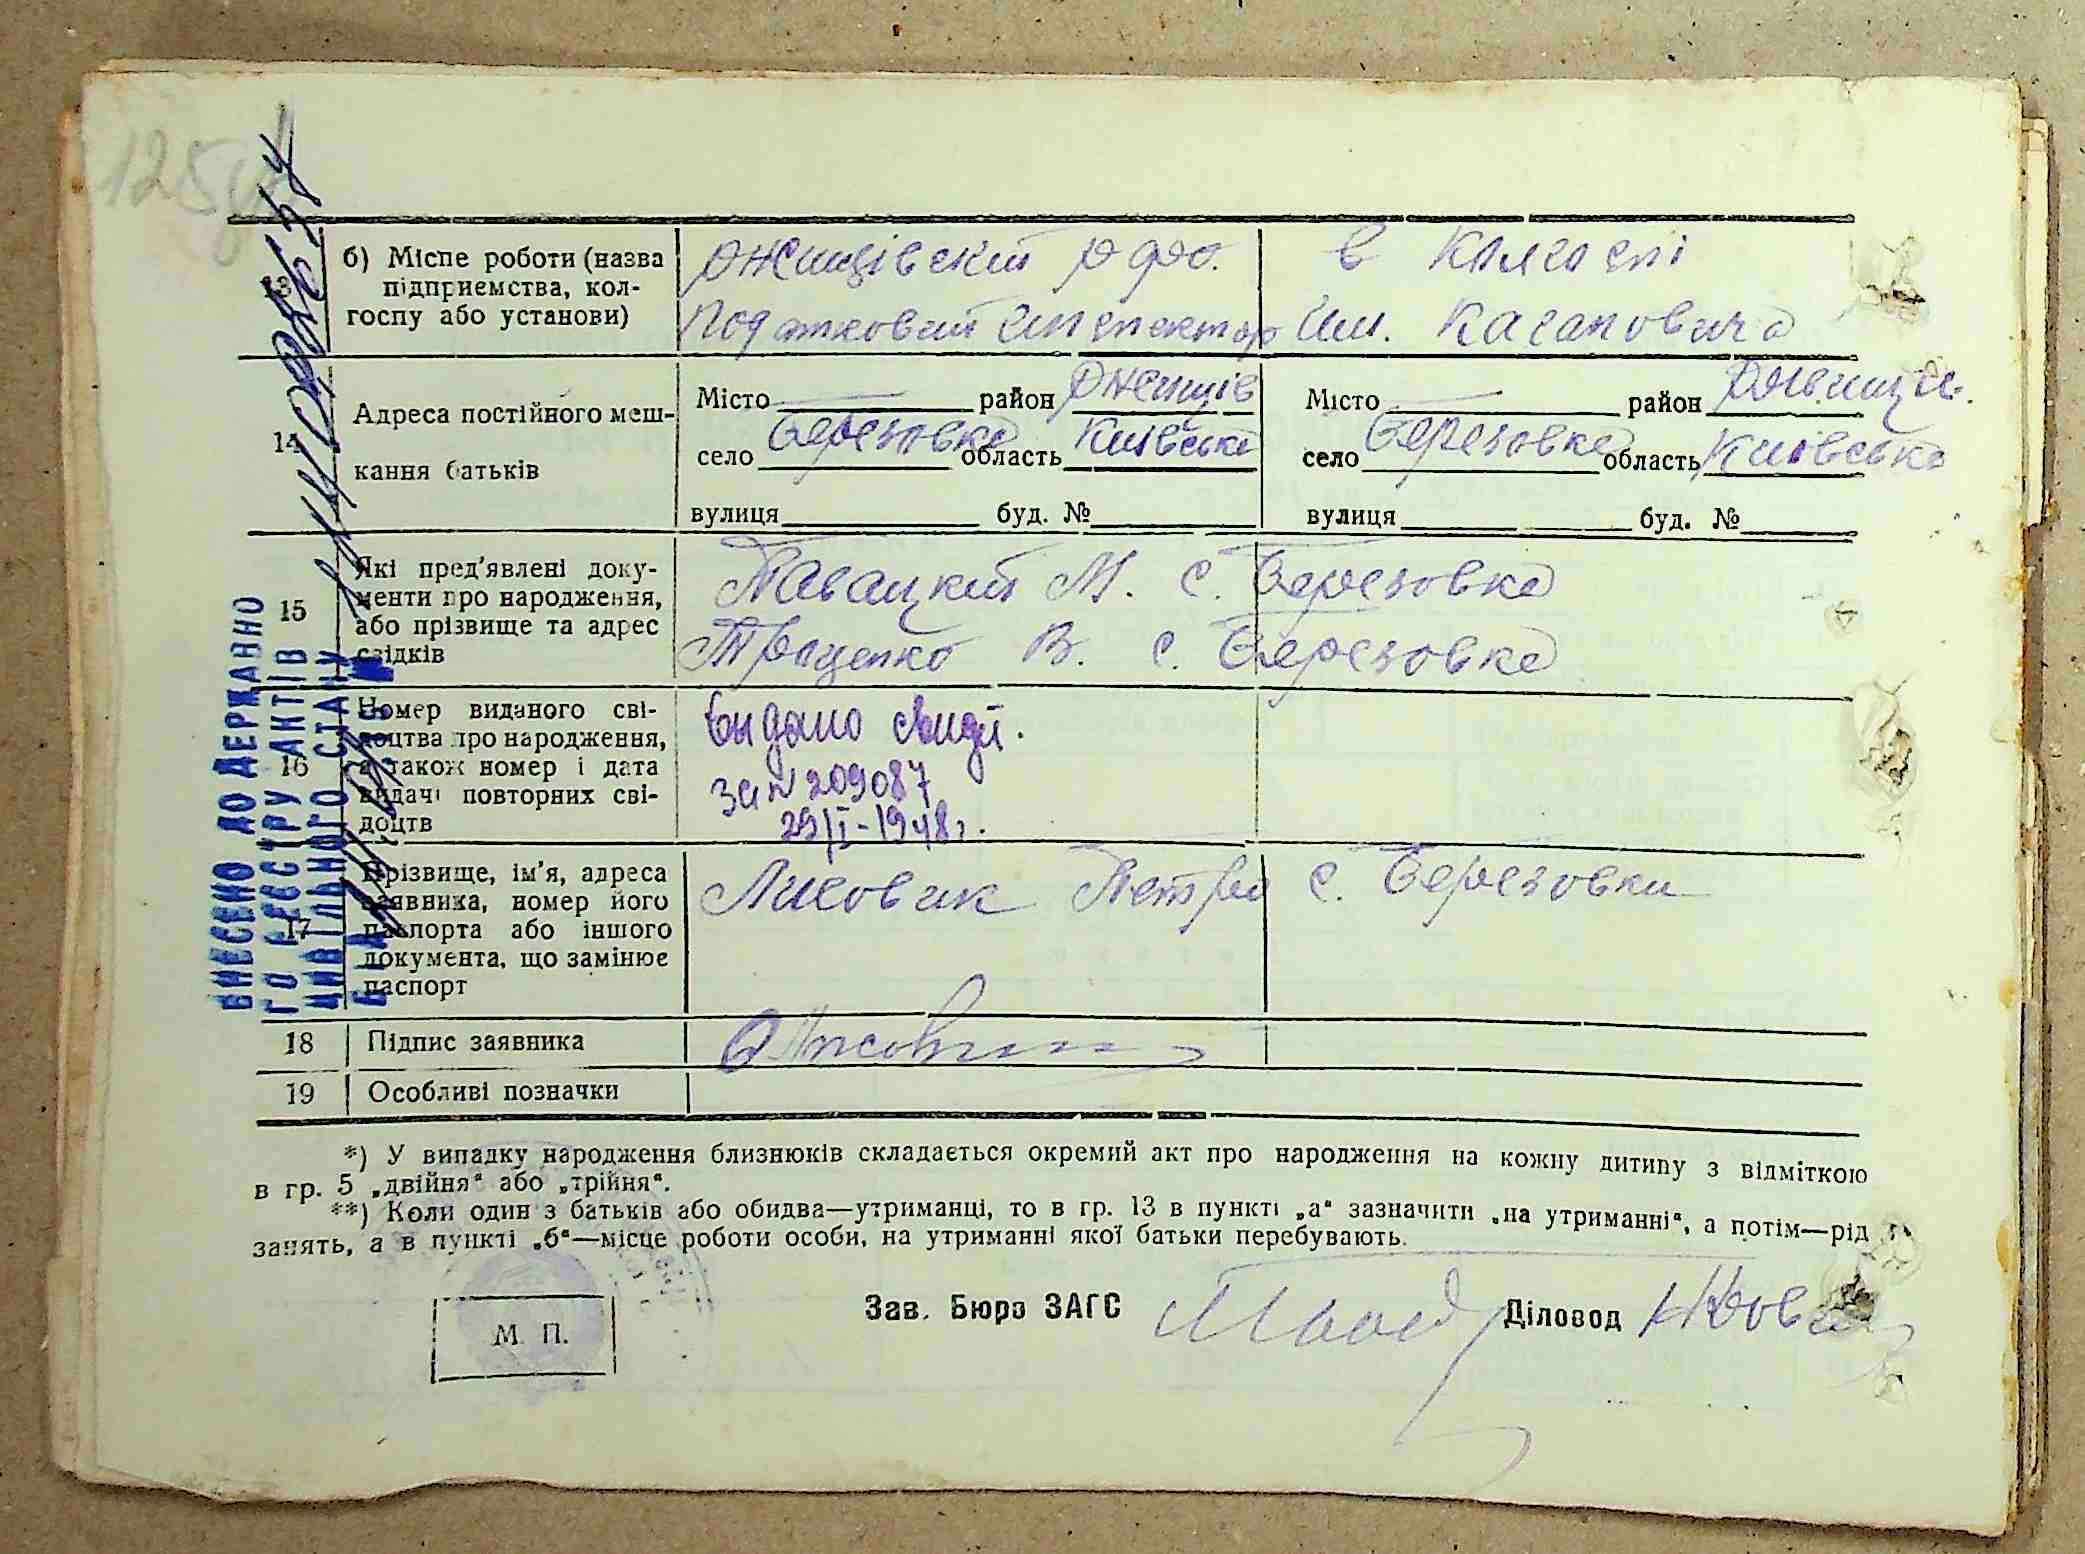 125
13
б) Місце роботи (назва
підприємства, кол-
госпу або установи)
Ржищівский рфо.
податковий инспектор
в колгоспі
Им. Кагановича
14
Адреса постійного меш-
кання батьків
Місто район Ржищів
село Березовка область Київська
вулиця буд. №
Місто район Ржищів.
село Березовка область Київська
вулиця буд. №
15
Які пред'явлені доку-
менти про народження,
або прізвище та адрес
свідків
М. с. Березовка
В. с. Березовка
16
Номер виданого сві-
доцтва про народження,
а також номер і дата
видачі повторних сві-
доцтв
Видано свид.
за N 209087
29/I-1948г.
17
Прізвище, ім'я, адреса
заявника, номер його
паспорта або іншого
документа, що замінює
паспорт
Лисовик Петро с. Березовки
18
Підпис заявника
19
Особливі позначки
*) У випадку народження близнюків складається окремий акт про народження на кожну дитину з відміткою
в гр. 5 „двійня“ або „трійня“.
**) Коли один з батьків або обидва—утриманці, то в гр. 13 в пункті „а“ зазначити „на утриманні“, а потім—рід
занять, а в пункті „б“—місце роботи особи, на утриманні якої батьки перебувають.
М. П.
Зав. Бюро ЗАГС
Діловод
ВНЕСЕНО ДО ДЕРЖАВНО
ГО РЕЄСТРУ АКТІВ
ЦИВІЛЬНОГО СТАНУ